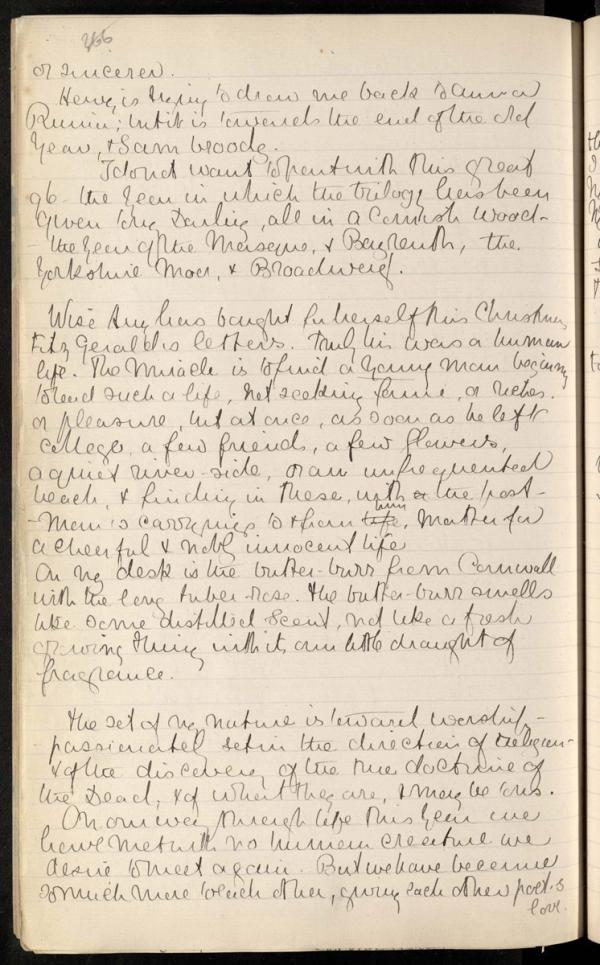 266
or sincerer.
Henry is trying to draw me back to Anna
Ruina; but it is towards the end of the old
Year, & Sarn Woods.
I do not want to part with this great
96 - the Year in which the trilogy has been
given to my Darling, all in a Cornish wood -
- the Year of the Masque, & Bayreuth, the
Yorkshire Moor, & Broadway.
Wise Amy has bought for herself this Christmas
FitzGerald's letters. Truly his was a human
life. The Miracle is to find a young man beginning
to lead such a life, not seeking fame, or riches.
or pleasure, but at once, as soon as he left
college, a few friends, a few flowers,
a quiet river-side, or an unfrequented
beach, & finding in these, with the post-
-man's carryings to & from him, matter for
a cheerful & nobly innocent life
On my desk is the butter-burr from Cornwall
with the long tuber-rose. The butter-burr smells
like some distilled scent, not like a fresh
growing thing with its own little draught of
fragrance.
The set of my nature is toward worship -
passionately set in the direction of religion -
& of the discovery of the true doctrine of
the Dead, & of what they are, & may be to us.
On our way through life this Year we
have met with no human creature we
desire to meet again. But we have become
so much more to each other, giving each other poet's
love.